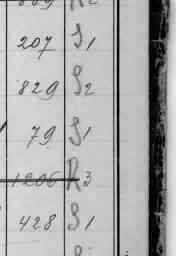 207 S1
829 S2
79 S1
1206 R3
428 S1